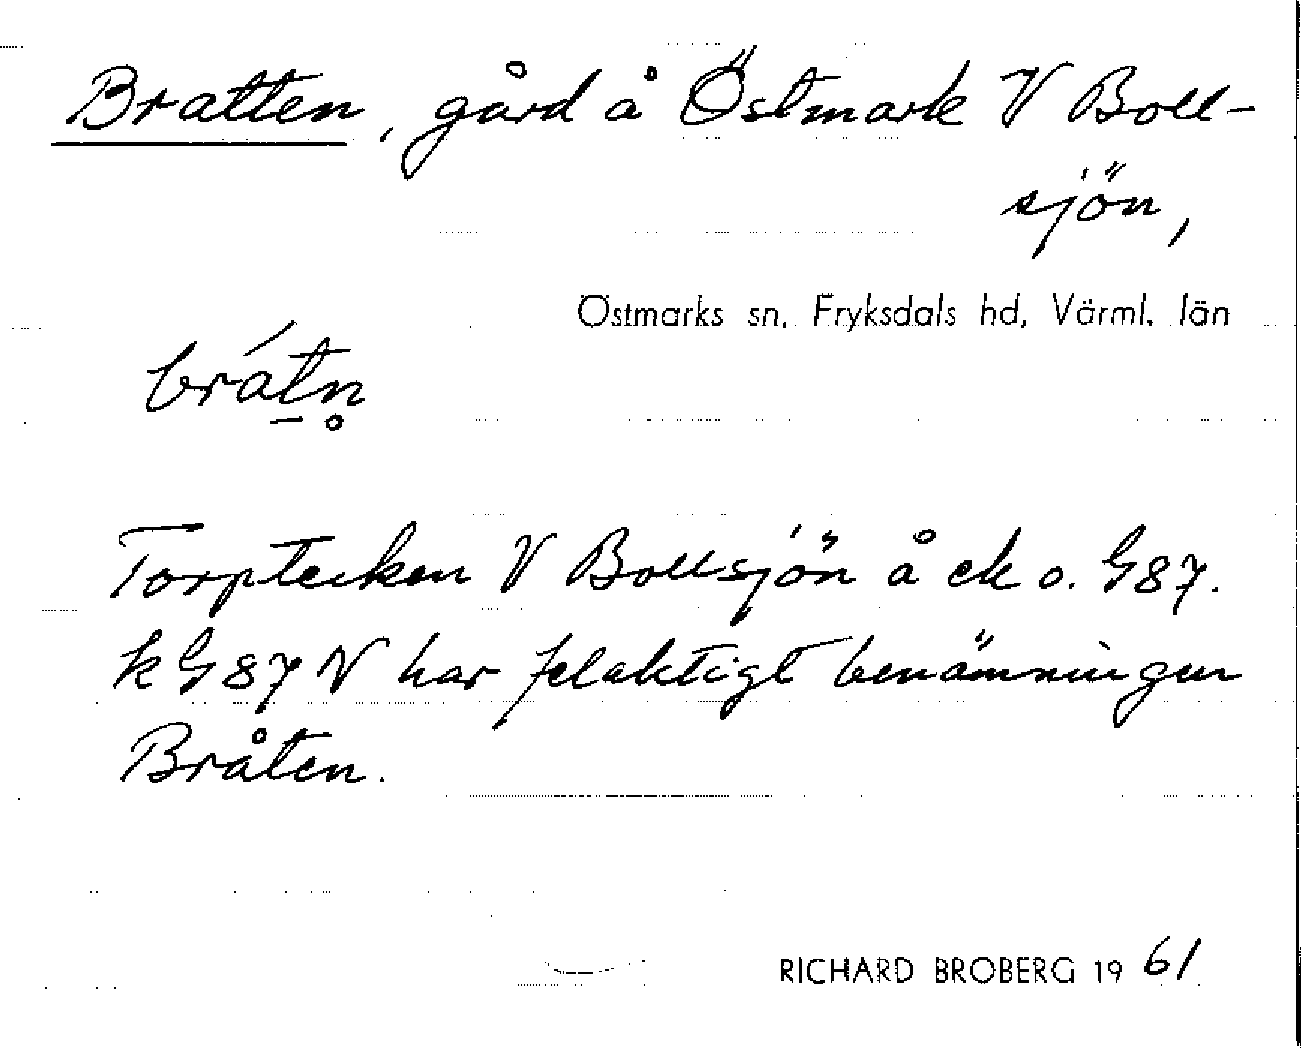 Bratten, gård å Östmark V Boll-
sjön,
Östmarks sn, Fryksdals hd, Värml. län
brát̠n̥
Torptecken V Bollsjön å ek o. G87.
k G87 N har felaktigt benämningen
Bråten.
RICHARD BROBERG 1961